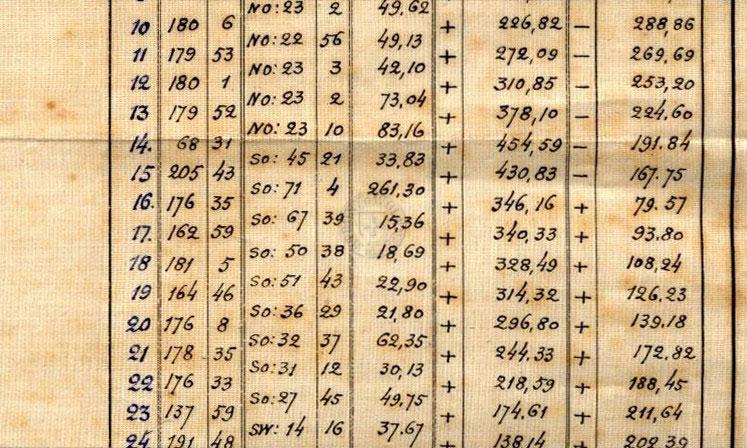 NO: 23 2 49,62
10 180 6 + 226,82 − 288,86
NO: 22 56 49,13
11 179 53 + 272,09 − 269,69
NO: 23 3 42,10
12 180 1 + 310,85 − 253,20
NO: 23 2 73,04
13 179 52 + 378,10 − 224,60
NO: 23 10 83,16
14. 68 31 + 454,59 − 191.84
SO: 45 21 33,83
15 205 43 + 430,83 − 167.75
SO: 71 4 261,30
16. 176 35 + 346,16 + 79.57
SO: 67 39 15,36
17. 162 59 + 340,33 + 93.80
SO: 50 38 18,69
18 181 5 + 328,49 + 108,24
SO: 51 43 22,90
19 164 46 + 314,32 + 126,23
SO: 36 29 21,80
20 176 8 + 296,80 + 139.18
SO: 32 37 62,35
21 178 35 + 244.33 + 172,82
SO: 31 12 30,13
22 176 33 + 218,59 + 188,45
SO: 27 45 49.75
23 137 59 + 174.61 + 211,64
SW: 14 16 37.67
24 191 48 + 138 14 + 202 39